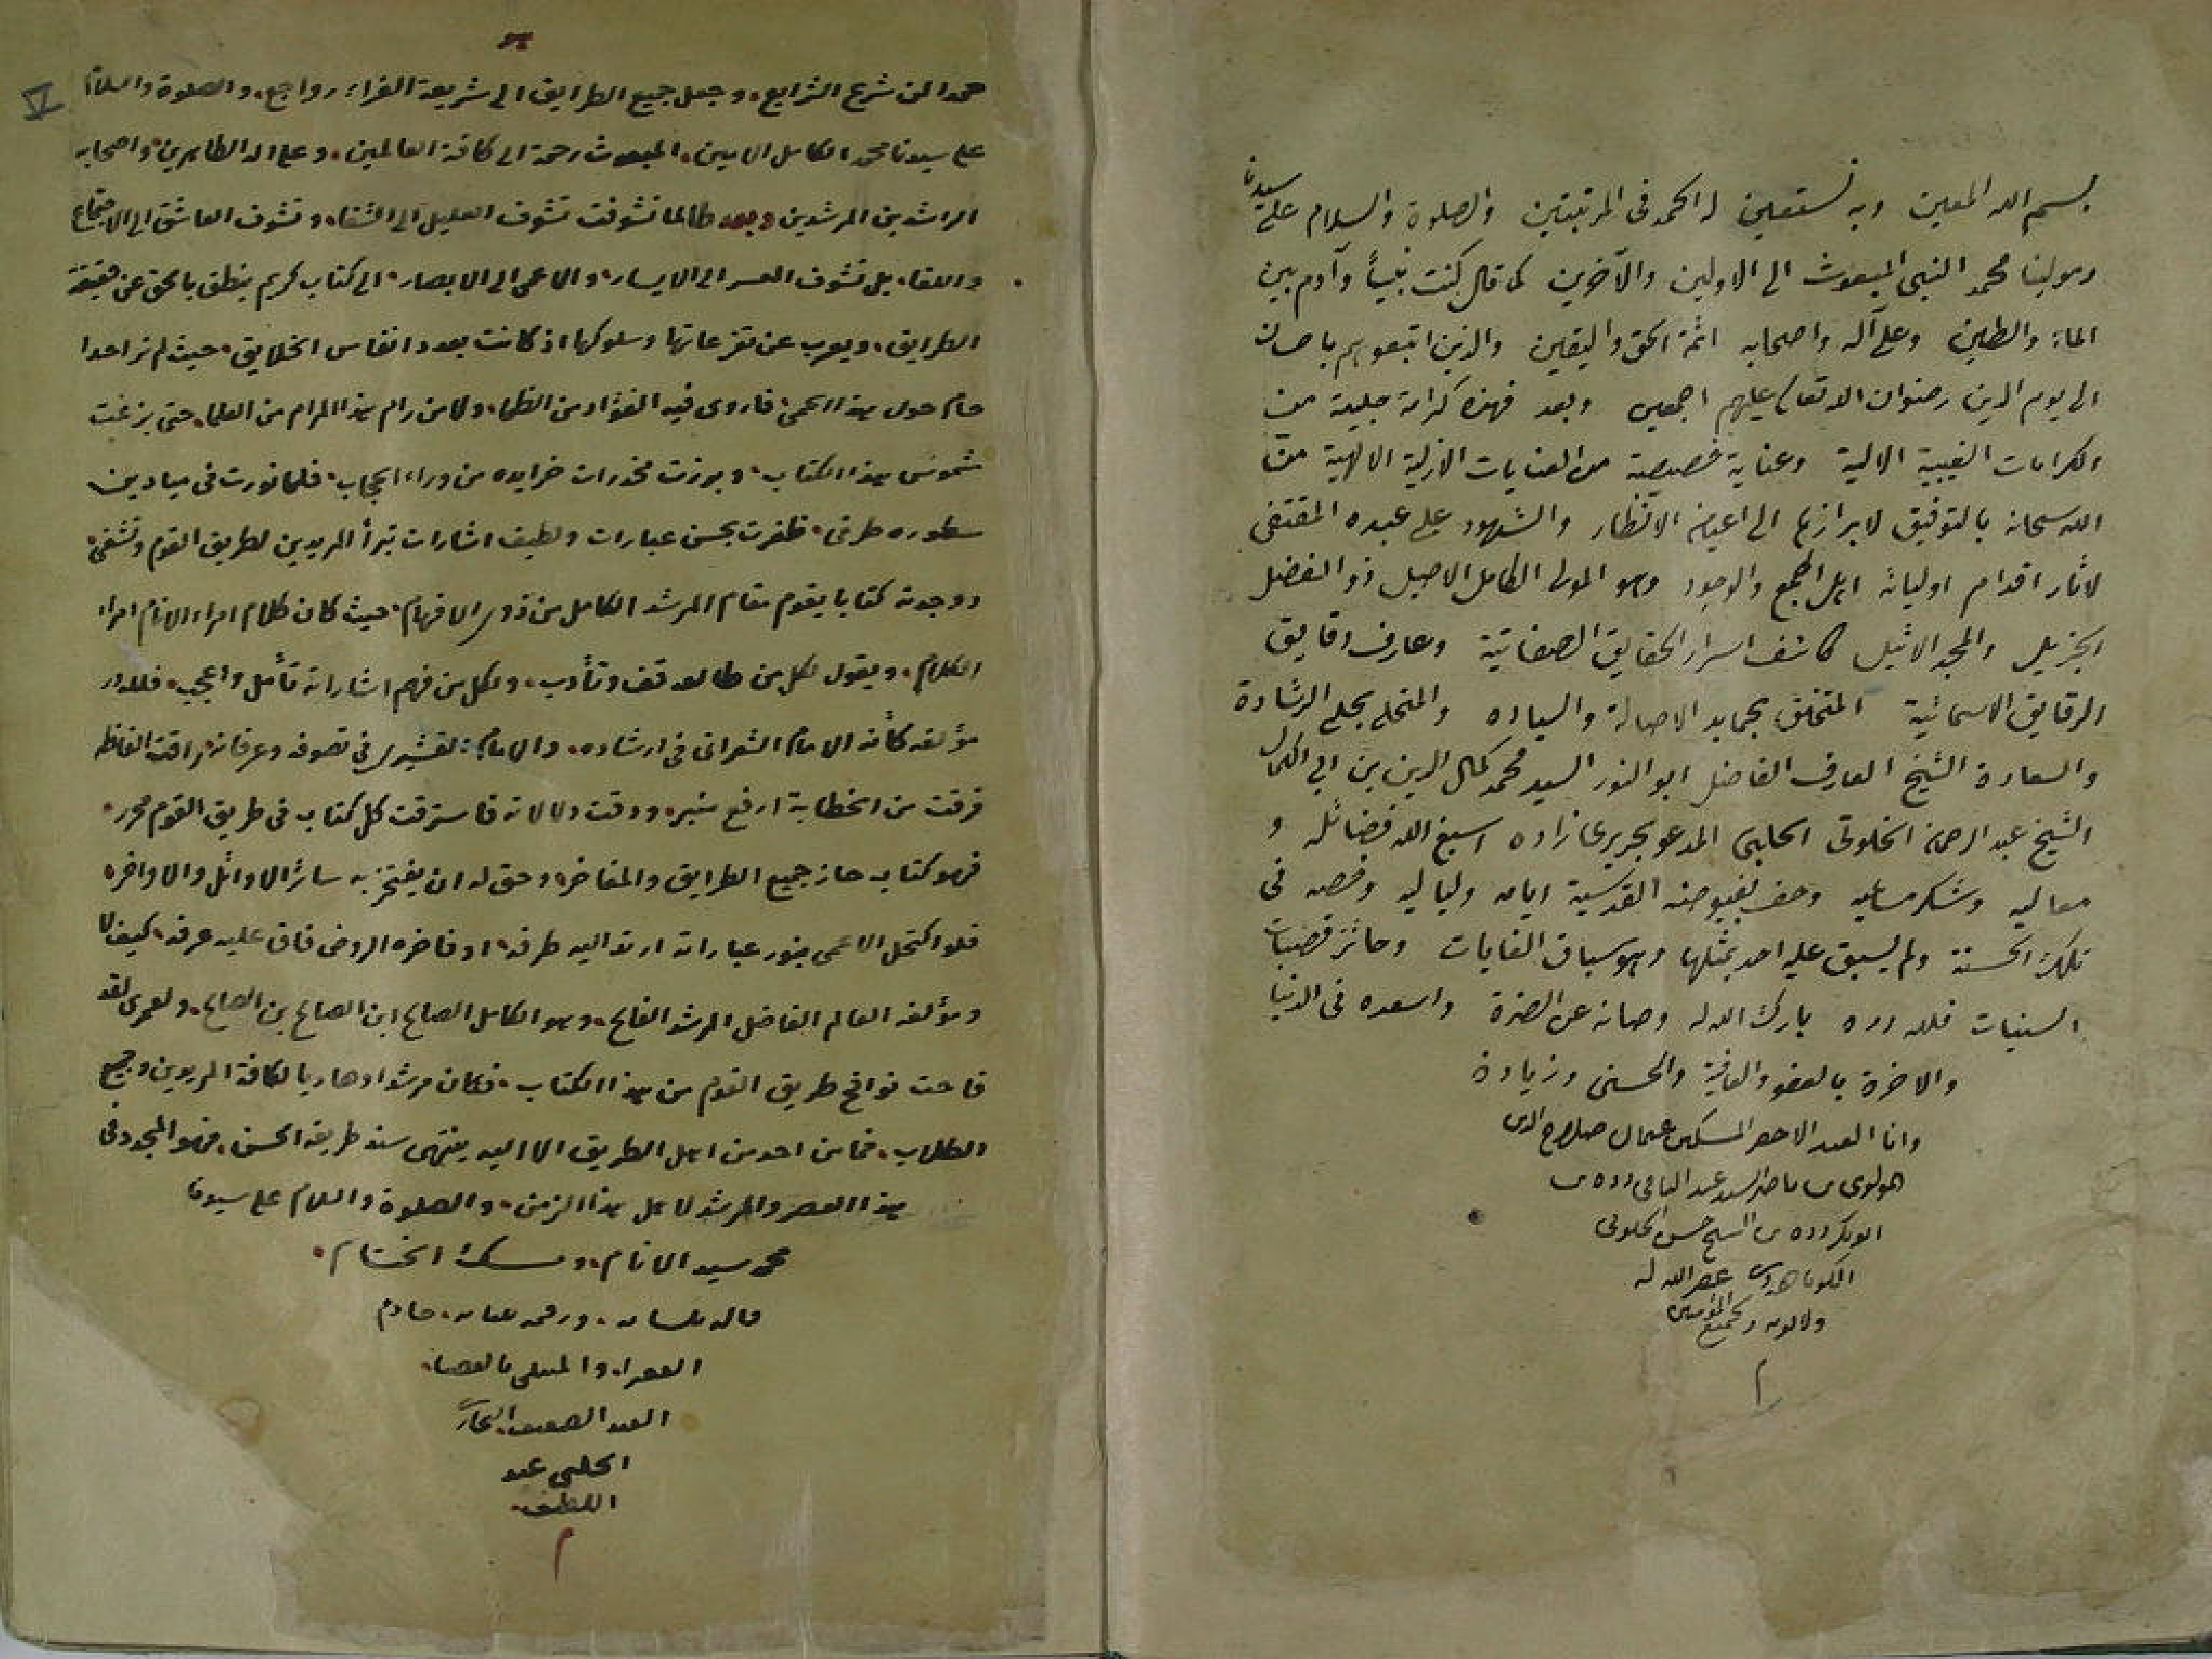 بسم الله المعين وبه نستعين له الحمد فى المرتبتين والصلوة والسلام على سيدنا
ومولينا محمد النبى المبعوث الى الاولين والآخرين كما قال كنت نبياً وآدم بين
الماء والطين وعلى آله واصحابه ائمة الحق واليقين والذين اتبعوهم باحسان
الى يوم الدين رضوان الله تعالى عليهم اجمعين وبعد فهذه كرامة جليلة من
الكرامات الغيبية الالية وعناية خصيصة من العنايات الازلية الالهية من
الله سبحانه بالتوفيق لابرازها الى اعيان الانظار والشهود على عبده المقتفى
لاثار اقدام اوليائه اهل الجمع والوجود وهو المولى الكامل الاصيل ذو الفضل
الجزيل والمجد الاثيل كاشف اسرار الحقايق الصفاتية وعارف دقايق
الرقايق الاسمائية المتخلق بمحامد الاصالة والسياده والمتحلى بحلى الرشادة
والسعادة الشيخ العارف الفاضل ابو النور السيد محمد كمال الدين بن ابى الكمال
الشيخ عبد الرحمن الخلوتى الحلبى المدعو بحريرى زاده اسبغ الله فضائله و
معاليه وشكر مساعيه وحف بفيوضه القدسية ايامه ولياليه وخصه فى
تلك الحسنة ولم يسبق عليه احد بمثلها وهو سباق الغايات وحائز قصبات
السنيات فلله دره بارك الله له وصانه عن المضرة واسعده فى الدنيا
والاخرة بالعفو والعافية والحسنى وزيادة
وانا العبد الاحقر المسكين عثمان صلاح الدين
المولوى بن ناصر السيد عبد الباقى دده بن
ابوبكر دده بن الشيخ حسن الخلوتى
غفر الله له
ولوالديه ولجميع المؤمنين
م
حمدا لمن شرع الشرايع، وجعل جميع الطرايق الى شريعة الغراء رواجع، والصلوة والسلام
على سيدنا محمد الكامل الامين، المبعوث رحمة الى كافة العالمين، وعلى اله الطاهرين واصحابه
الراشدين المرشدين وبعد طالما تشوفت تشوف العليل الى الشفاء، وتشوف العاشق الى الاجتماع
واللقاء، بل تشوف العسر الى الايسار، والاعمى الى الابصار، الى كتاب كريم ينطق بالحق عن حقيقة
الطرايق، ويعرب عن تفرعاتها وسلوكها اذ كانت بعدد انفاس الخلايق، حيث لم نر احدا
حام حول هذا الحمى، فاروى فيه الفؤاد من الظما، ولا من رام هذا المرام من العلما، حتى بزغت
شموس هذا الكتاب، وبرزت مخدرات خرايده من وراء الحجاب، فلما نورت فى ميادين
سطوره طرفى، ظفرت بحسن عبارات ولطيف اشارات تبرأ المريدين لطريق القوم وتشفى،
ووجدته كتابا يقوم مقام المرشد الكامل من ذوى الافهام، حيث كان كلام امراء الانام امراء
الكلام، ويقول لكل من طالعه قف وتأدب، ولكل من فهم اشاراته تأمل واعجب، فلله در
مؤلفه كأنه الامام الشعرانى فى ارشاده، والامام القشيرى فى تصوفه وعرفانه، راقت الفاظه
فرقت من الخطابة ارفع منبر، ودقت دلالاته فاسترقت كل كتاب فى طريق القوم محرر،
فهو كتاب حاز جميع الطرايق والمفاخر، وحق له ان يفتخر به سائر الاوائل والاواخر،
فلو اكتحل الاعمى بنور عباراته ارتد اليه طرفه، او فاخره الروض فاق عليه عرفه، كيف لا
ومؤلفه العالم الفاضل المرشد الفالح، وهو الكامل الصالح ابن الصالح بن الصالح، ولعمرى لقد
فاحت نوافح طريق القوم من هذا الكتاب، فكان مرشدا وهاديا لكافة المريدين وجميع
الطلاب، فما من احد من اهل الطريق الا اليه ينتهى سند طريقه الحسن، فهو المجدد فى
هذا العصر والمرشد لاهل هذا الزمن، والصلوة والسلام على سيدنا
محمد سيد الانام، ومسك الختام،
قاله بلسانه، ورقمه ببنانه، خادم
الفقراء، والمبتلى بالعصا،
العبد الضعيف
الحلبى عبد
اللطيف،
م